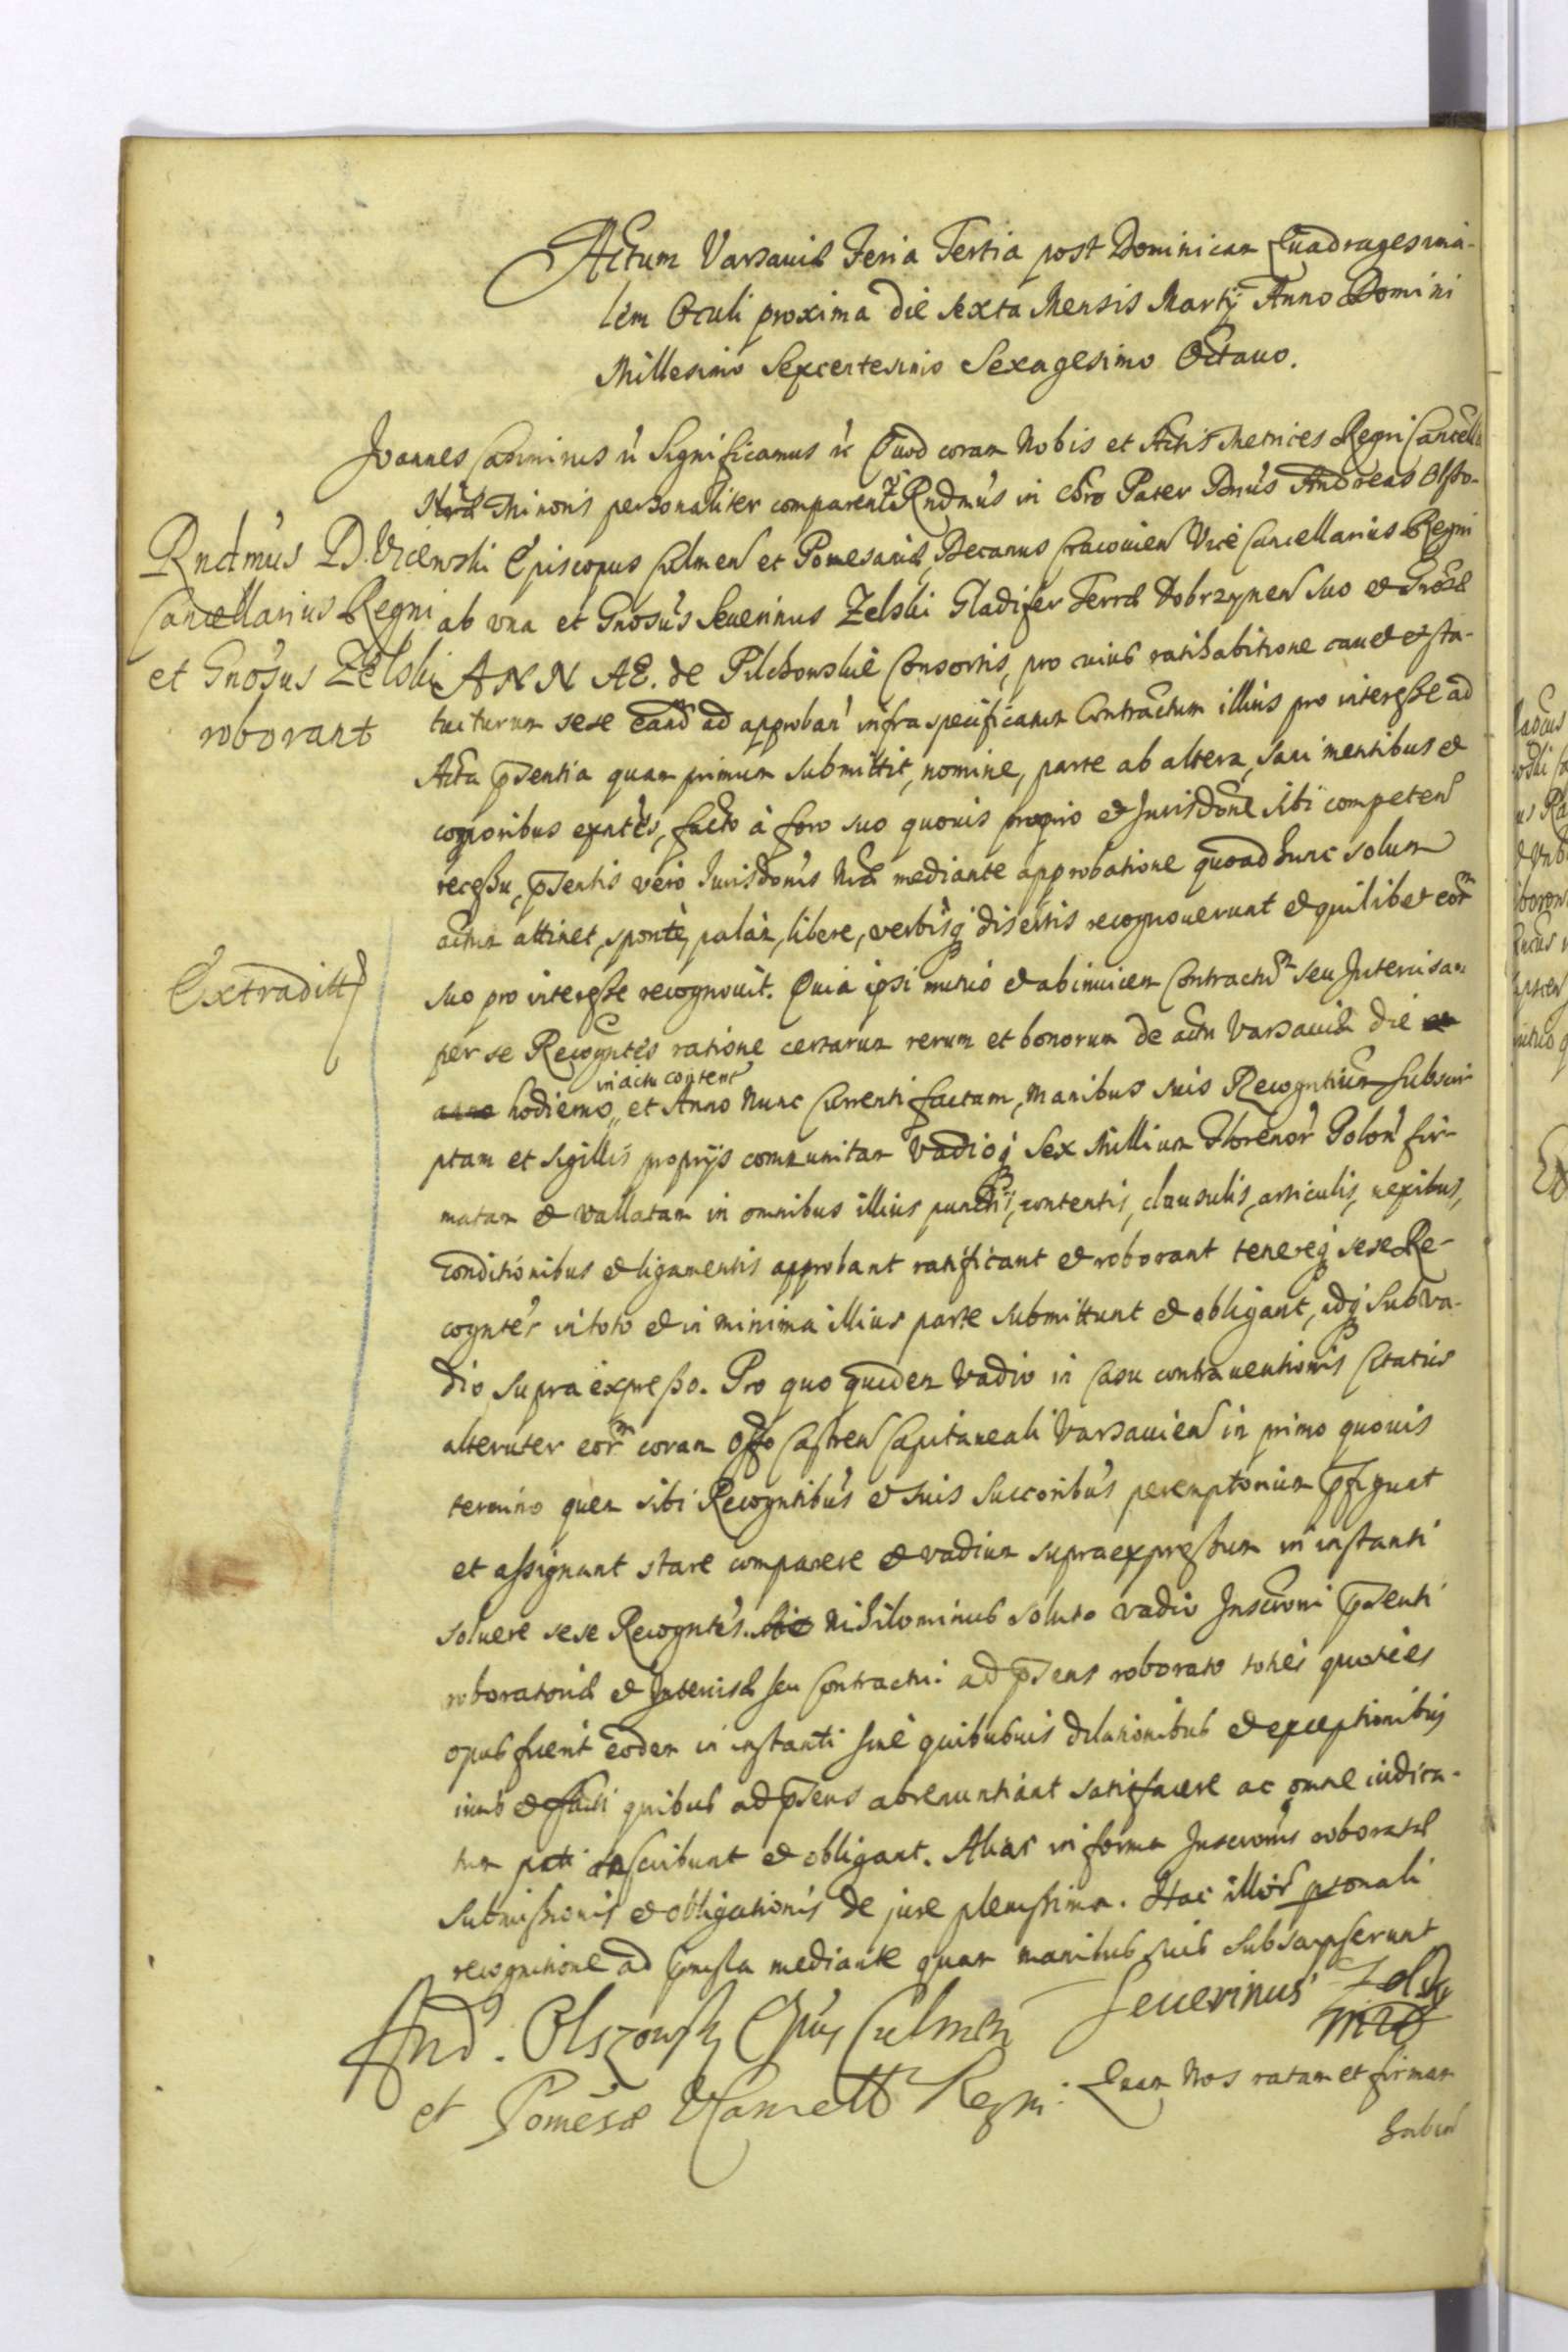 Actum Varsaviae Feria Tertia post Dominicam Quadragesima-
lem Oculi proxima die sexta Mensis Martij Anno Domini
Millesimo Sexcentesimo Sexagesimo Octauo.
Joannes Casimirus &c Significamus &c Quod coram Nobis et Actis Metrices Regni Cancell
Nrae Minoris personaliter comparent Rndmus in Chro Pater Dnus Andreas Olsso-
wski Episcopus Culmen et Pomesaniae Decanus Cracouien Vice Cancellarius Regni
Rndmus D. Vice
Cancellarius Regni
et Gnosus Zelski
roborant
ab una et Gnosus Seuerinus Zelski Gladifer Terrae Dobrzynen suo et Gnosae
ANNAE. de Pilchowskie Consortis, pro cuius ratihabitione cauet et sta-
tuiturum sese eand ad approban infraspecificatum Contractum illius pro interesse ad
Acta pñsentia quam primum submittit, nomine, parte ab altera, sani mentibus et
corporibus exntes, facto à foro suo quouis proprio et Jurisdone sibi competen
recessu, pñsentis vero Jurisdonis Nrae mediante approbatione quoad hunc solum
actum attinet, sponte, palàm, libere, verbisq disertis recognouerunt et quilibet eor
Extraditt
suo pro interesse recognouit. Quia ipsi mutuo et abinuicem Contractum seu Intercisam
per se Recogntes ratione certarum rerum et bonorum de actu Varsauiae die
hodierno in actu content et Anno Nunc Currenti factam, manibus suis Recogntium subscri-
ptam et sigillis proprijs communitam Vadioq Sex Millium Florenor Polon fir-
matam et vallatam in omnibus illius punctis, contentis, clausulis, articulis, nexibus,
conditionibus et ligamentis approbant ratificant et roborant tenereq sese Re-
cogntes in toto et in minima illius parte submittunt et obligant, idq sub va-
dio supra expresso. Pro quo quidem Vadio in Casu contrauentionis Citatus
alteruter eor coram Offo Castren Capitaneali Varsauien in primo quouis
termino quem sibi Recogntibus et suis Succoribus peremptorium pfigunt
et assignant stare comparere et vadium supraexpressum in instanti
soluere sese Recogntes. Nihilominus soluto vadio Inscroni pñsenti
roboratoriae et Intercisae seu Contractui ad pñsens roborato toties quoties
opus fuerit eodem in instanti sine quibusuis dilationibus et exceptionibus
iuris et facti quibus ad pñsens abrenuntiant satisfacere ac omne iudica-
tum pati inscribunt et obligant. Alias in forma Inscronis roboratae
submissionis et obligationis de jure plenissima. Hac illor psonali
recognitione ad pmissa mediante quam manibus suis subscripserunt
And. Olszowsky Epus Culmen Seuerinus Zelsky
et Pomesa VCancell Regni mp
Quam Nos ratam et firmam
habend